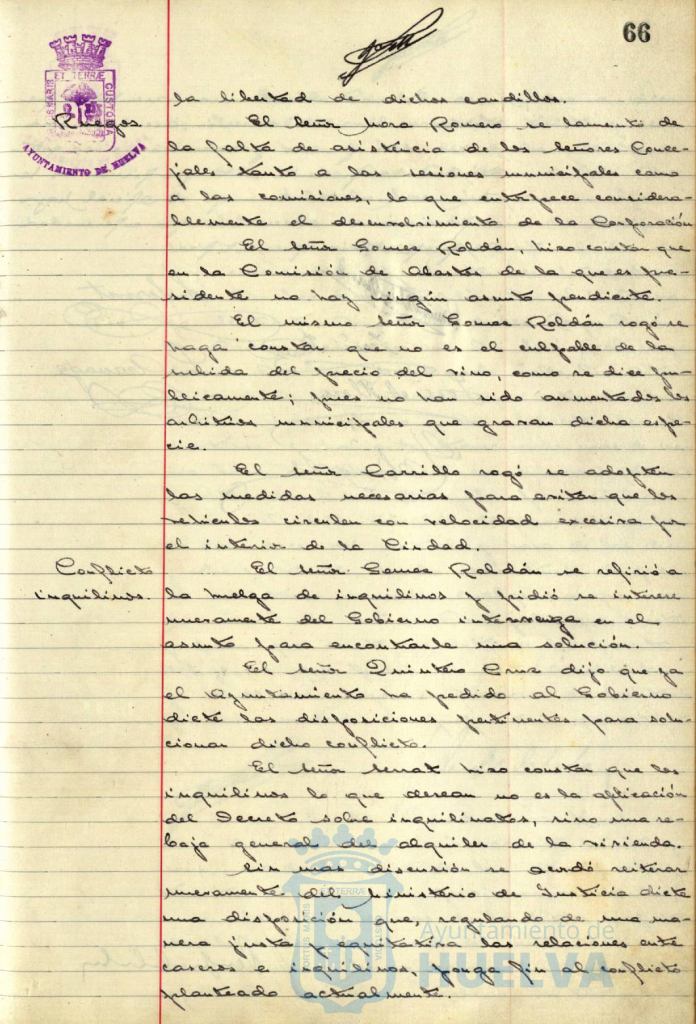 66
PORTUS MARIS ET TERRÆ CUSTODIA
AYUNTAMIENTO DE HUELVA
la libertad de dichos caudillos.
Ruegos.
El señor Mora Romero se lamentó de
la falta de asistencia de los señores Conce-
jales tanto a las sesiones municipales como
a las comisiones, lo que entorpece considera-
blemente el desenvolvimiento de la Corporación
El señor Gomez Roldán, hizo constar que
en la Comisión de Abastos de la que es pre-
sidente no hay ningún asunto pendiente.
El mismo señor Gomez Roldán rogó se
haga constar que no es el culpable de la
subida del precio del vino, como se dice pu-
blicamente; pues no han sido aumentados los
arbitrios municipales que gravan dicha espe-
cie.
El señor Carrillo rogó se adopten
las medidas necesarias para evitar que los
vehiculos circulen con velocidad excesiva por
el interior de la Ciudad.
Conflicto
inquilinos.
El señor Gomez Roldán se refirió a
la huelga de inquilinos y pidió se interese
nuevamente del Gobierno intervenga en el
asunto para encontrarle una solución.
El señor Quintero Cruz dijo que ya
el Ayuntamiento ha pedido al Gobierno
dicte las disposiciones pertinentes para solu-
cionar dicho conflicto.
El señor Serrat hizo constar que los
inquilinos lo que desean no es la aplicación
del Decreto sobre inquilinatos, sino una re-
baja general del alquiler de la vivienda.
Sin mas discusión se acordó reiterar
nuevamente del Ministerio de Justicia dicte
una disposición que, regulando de una ma-
nera justa y equitativa las relaciones entre
caseros e inquilinos, ponga fin al conflicto
planteado actualmente.
Ayuntamiento de
HUELVA